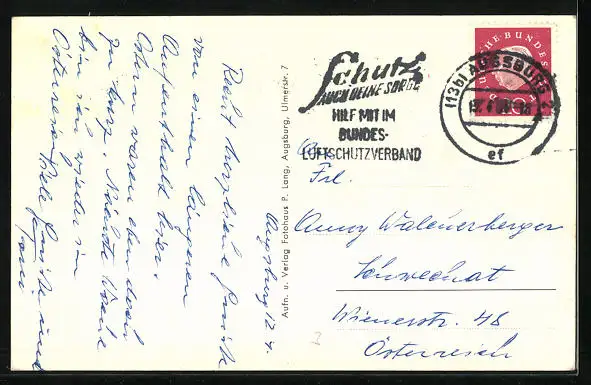 Augsburg 12.4.
Recht herzliche Grüße
von einem längeren
Aufenthalt hier.
Ostern waren eben doch
zu kurz. Nächste Woche
bin ich wieder in
Österreich. Viele Grüße und
Aufn. u. Verlag Fotohaus P. Lang, Augsburg, Ulmerstr. 7
Schutz
AUCH DEINE SORGE
HILF MIT IM
BUNDES-
LUFTSCHUTZVERBAND
DEUTSCHE BUNDESPOST
(13b) AUGSBURG 2
ef
Frl.
Anny
Schwechat
Wienerstr. 48
Österreich